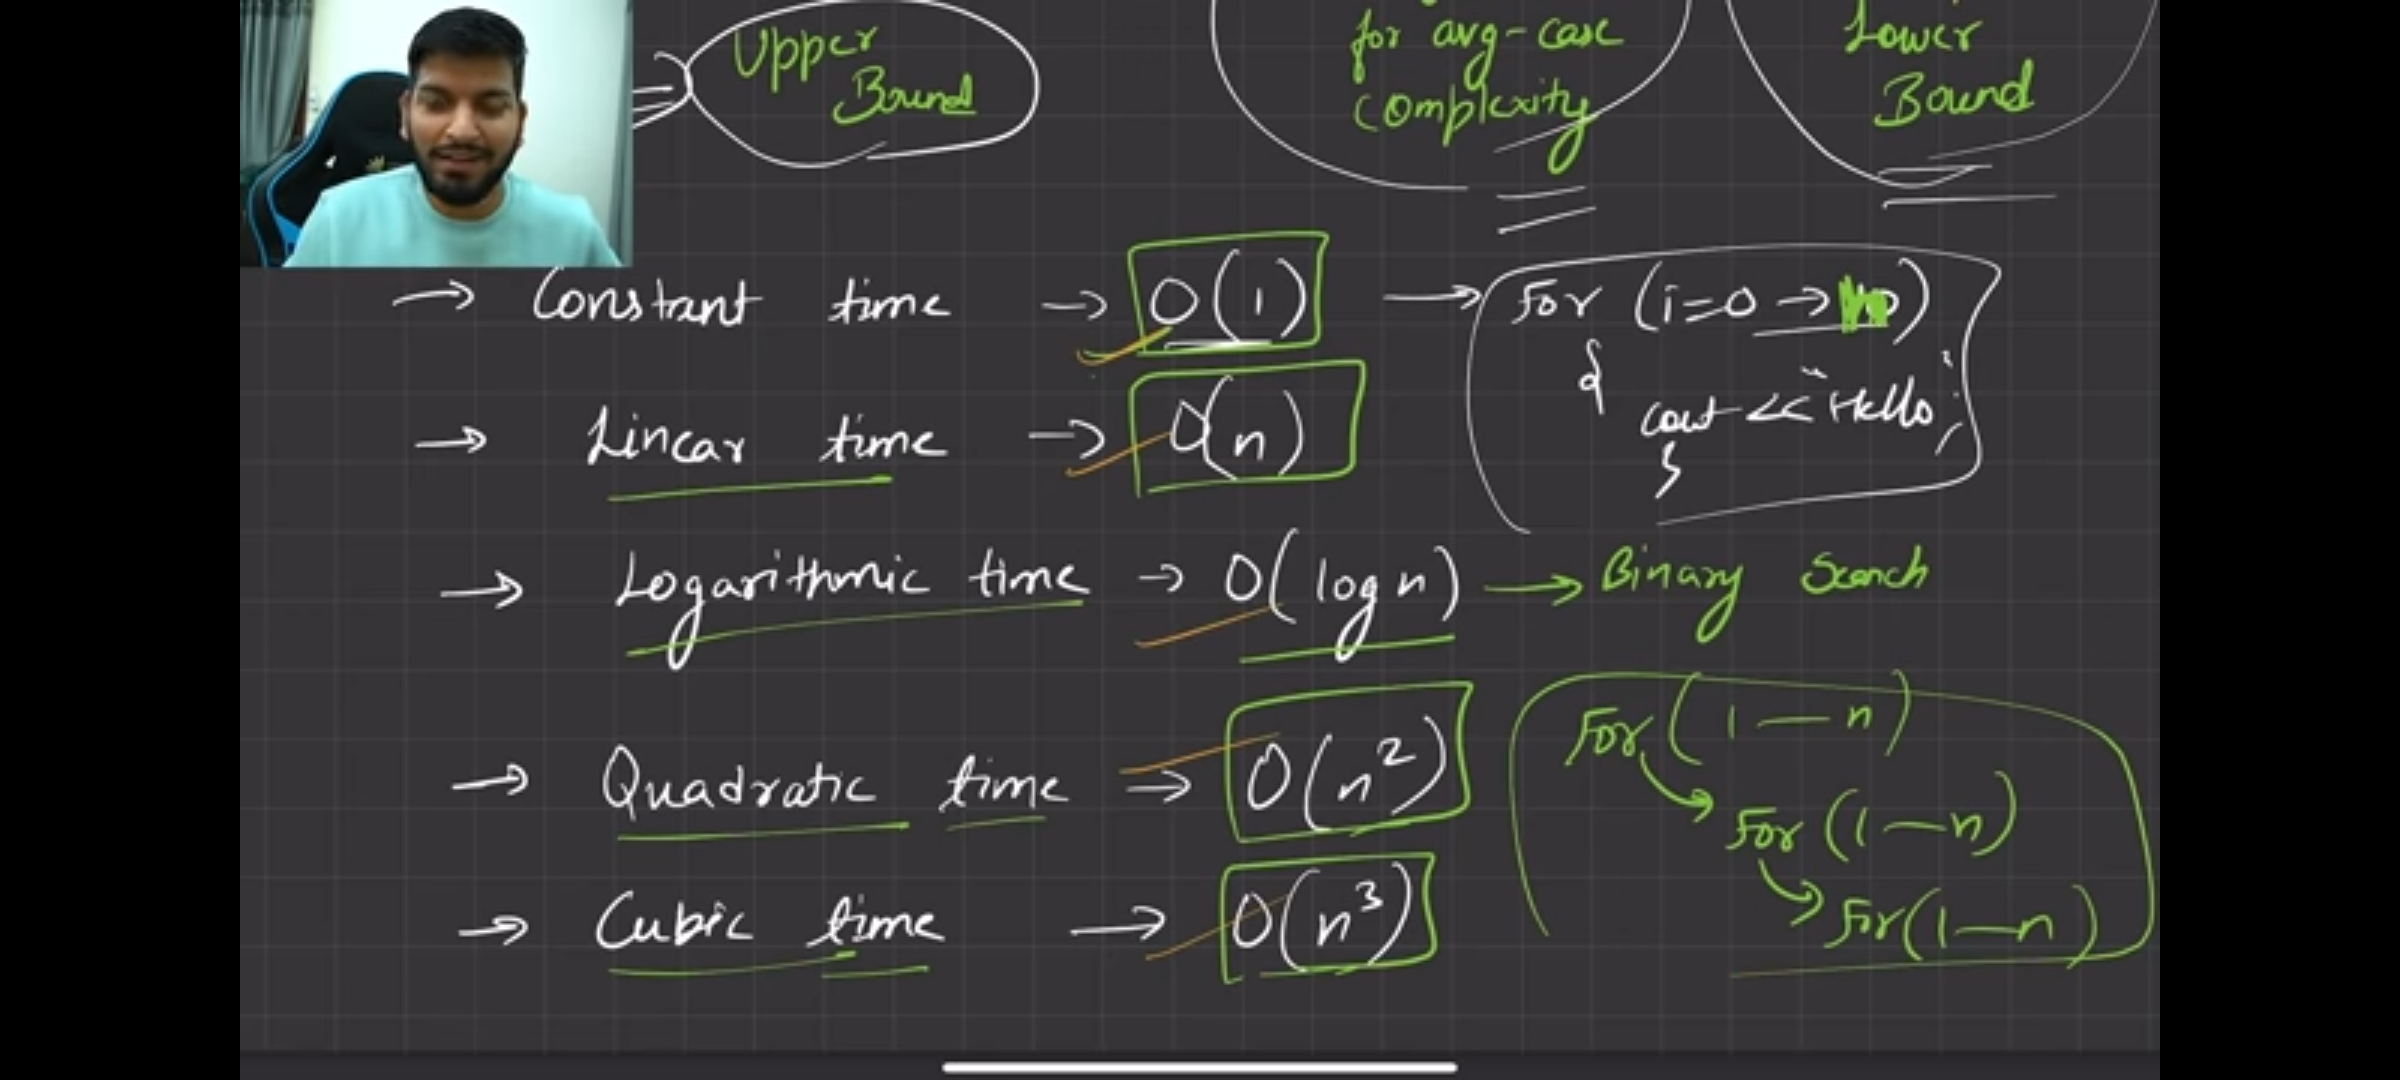 Upper
Bound
for avg-case
complexity
Lower
Bound
→ Constant time → O(1) → for (i=0 → )
{
cout << "Hello";
}
→ Linear time → O(n)
→ Logarithmic time → O(log n) → Binary Search
→ Quadratic time → O(n²)
→ Cubic time → O(n³)
for (1 — n)
for (1 — n)
for (1 — n)